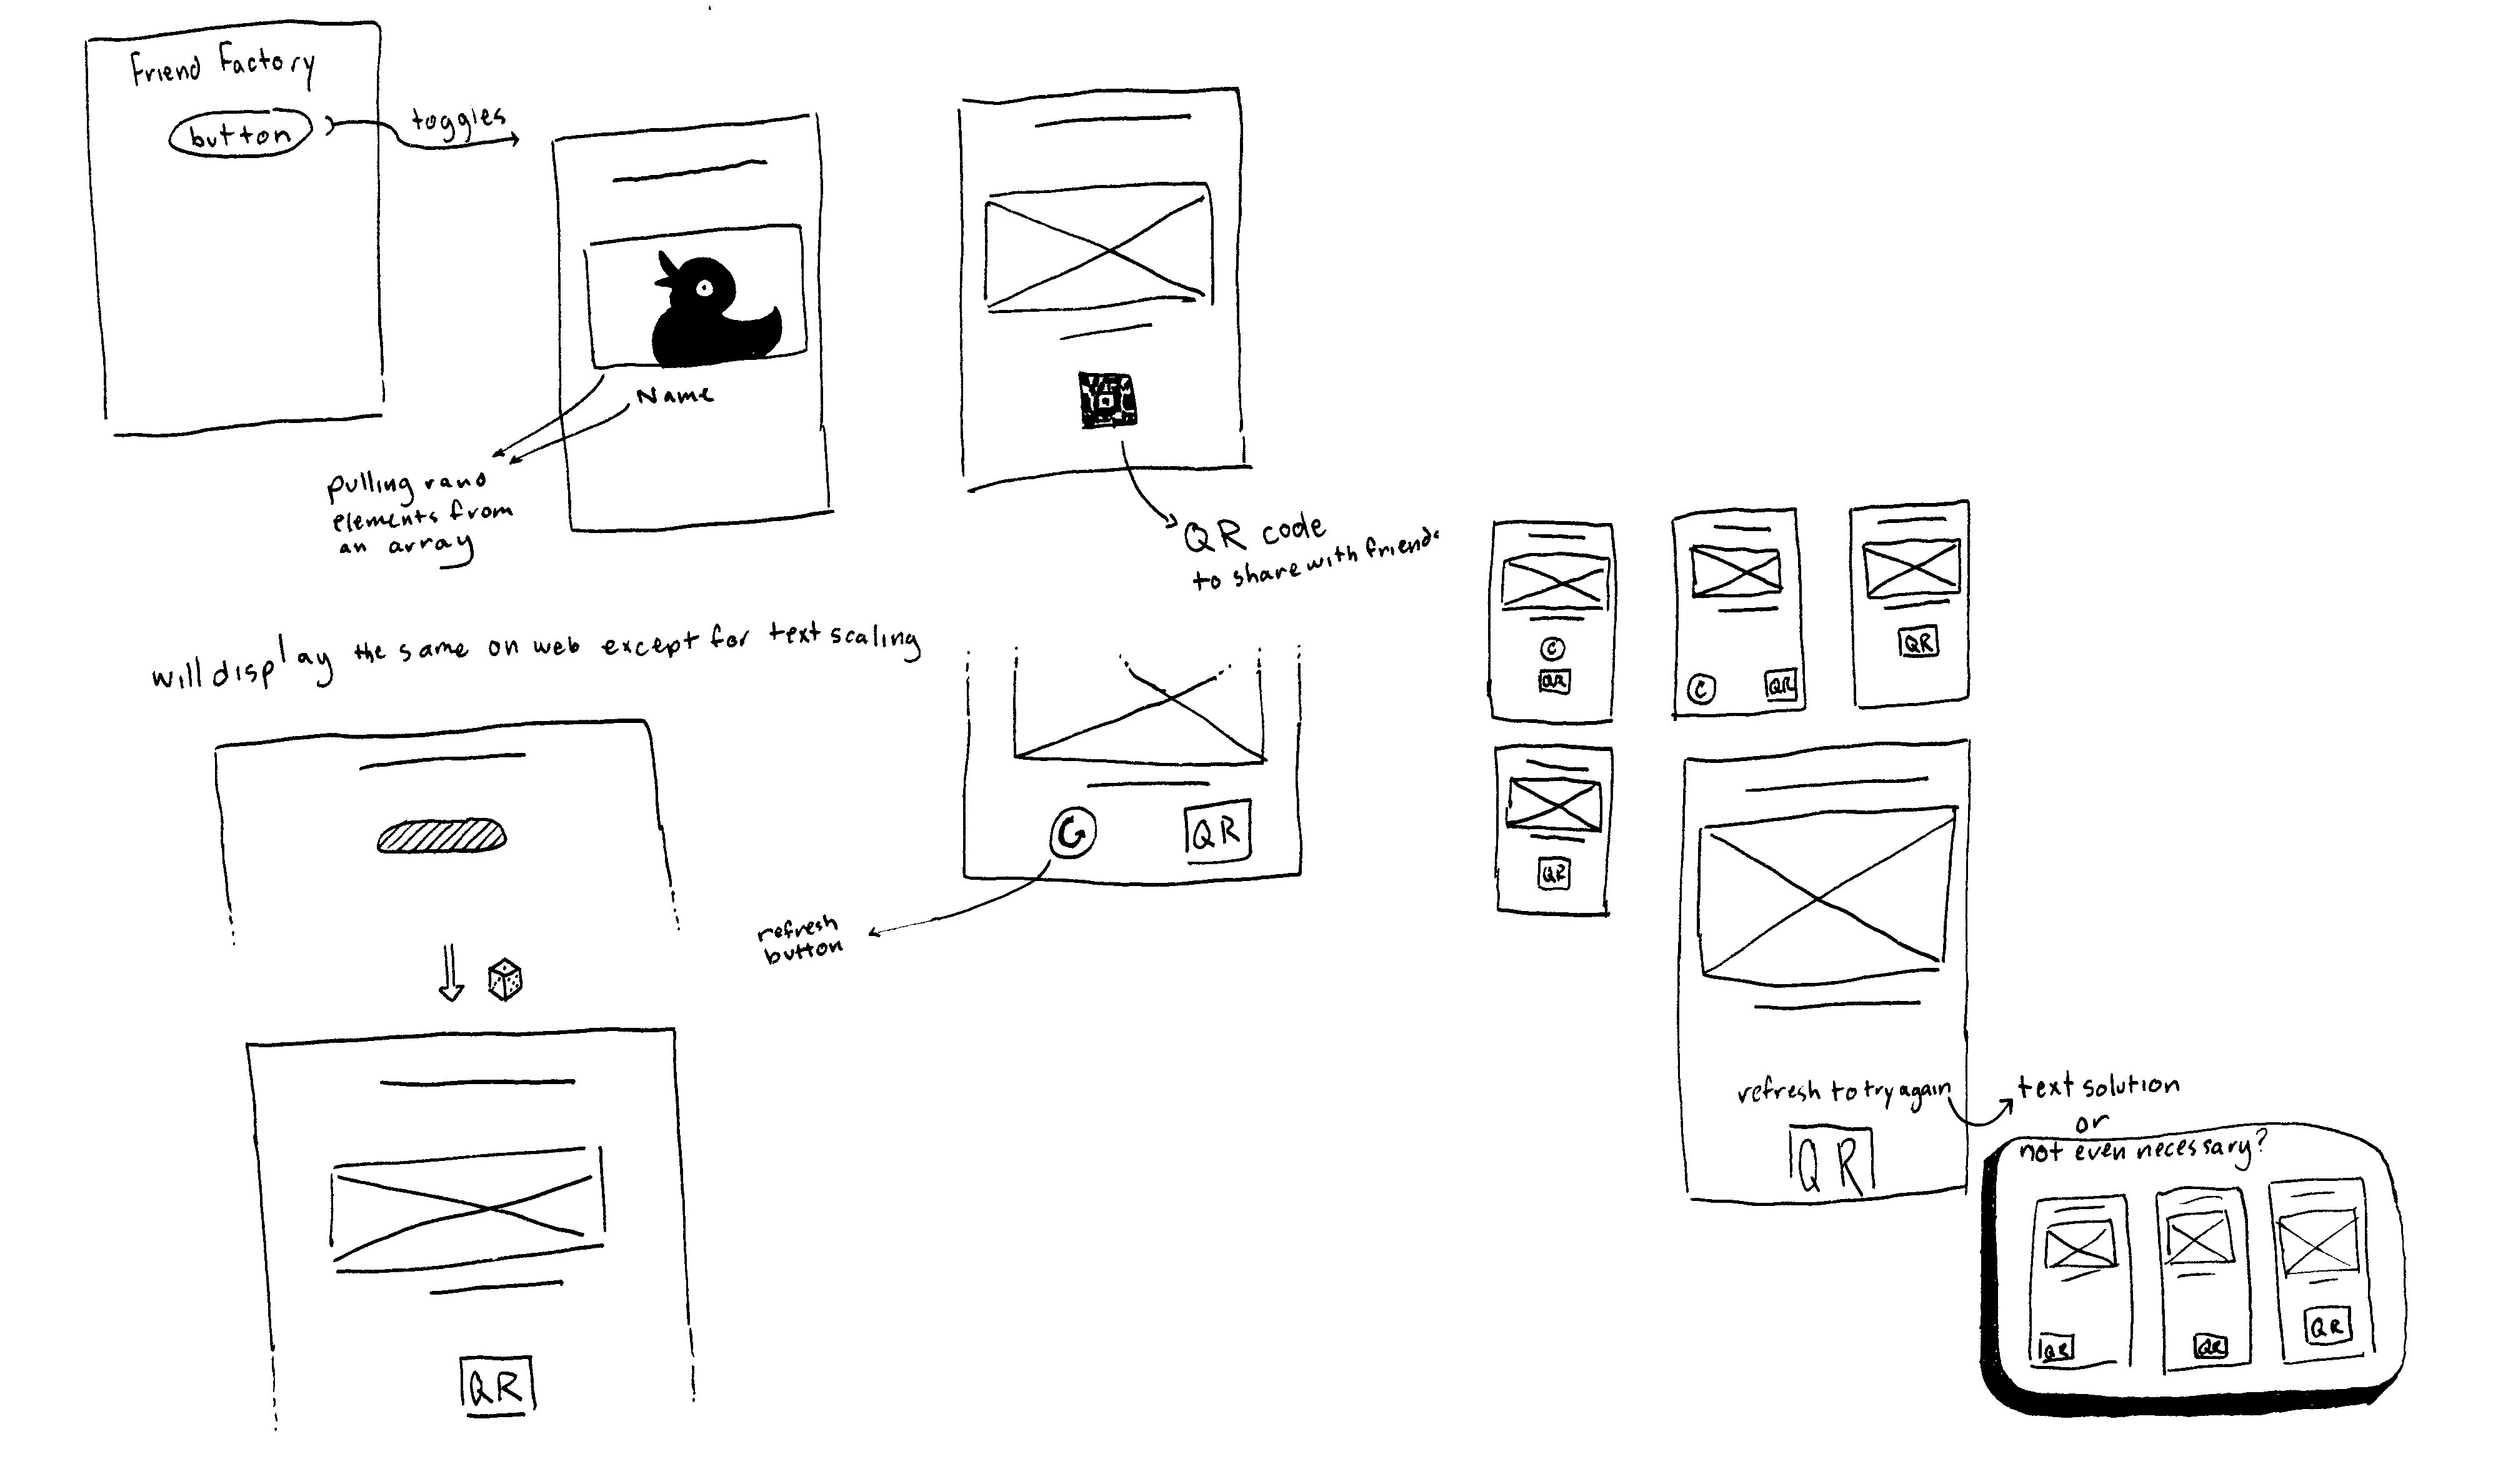 Friend Factory
button
toggles
Name
pulling rand
elements from
an array
QR code
to share with friends
will display the same on web except for text scaling
refresh
button
QR
QR
C
QR
C
QR
QR
QR
refresh to try again
QR
text solution
or
not even necessary?
QR
QR
QR